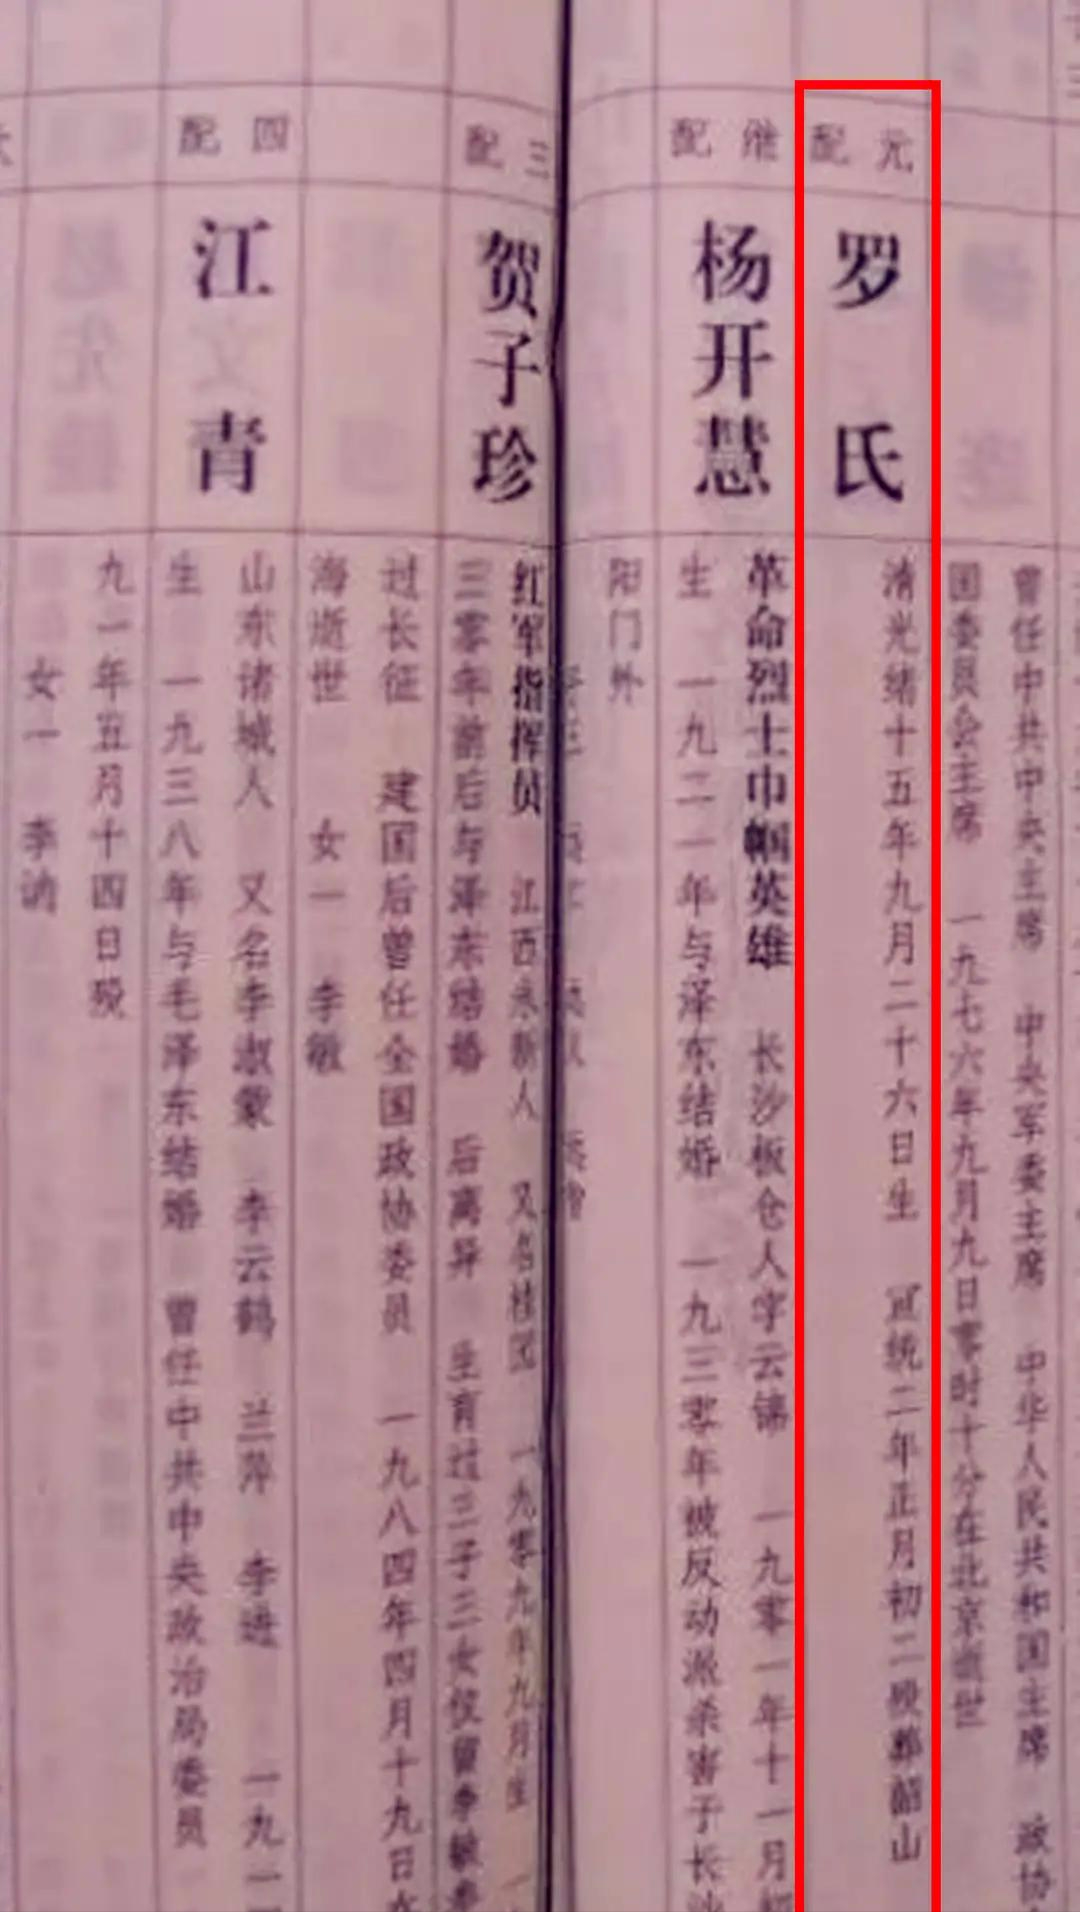 曾任中共中央主席 中央军委主席 中华人民共和国主席 政协
国委员会主席 一九七六年九月九日零时十分在北京逝世
元配
罗氏
清光绪十五年九月二十六日生 宣统二年正月初二殁葬韶山
继配
杨开慧
革命烈士巾帼英雄 长沙板仓人字云锦 一九零一年十一月初
生 一九二一年与泽东结婚 一九三零年被反动派杀害于长沙
阳门外
三配
贺子珍
红军指挥员 江西永新人 又名桂园 一九零九年九月生 一
三零年前后与泽东结婚 后离异 生育过三子三女仅留李敏参
过长征 建国后曾任全国政协委员 一九八四年四月十九日在
海逝世 女一 李敏
四配
江青
山东诸城人 又名李淑蒙 李云鹤 兰萍 李进 一九一
生 一九三八年与毛泽东结婚 曾任中共中央政治局委员
九一年五月十四日殁
女一 李讷